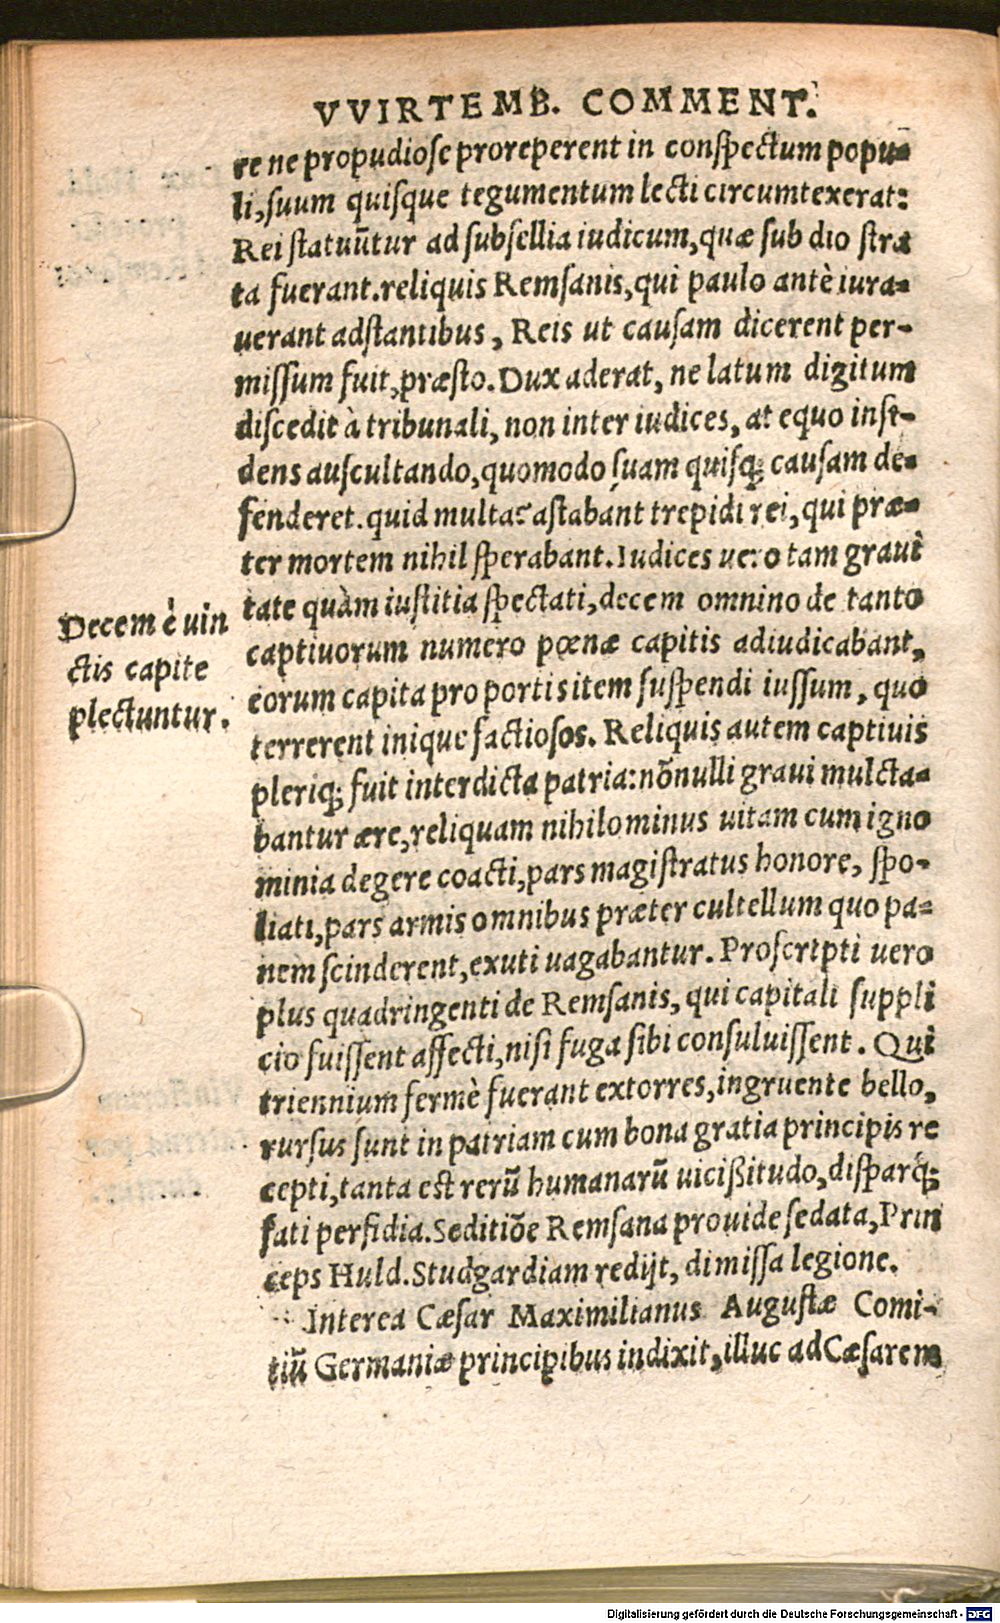 VVIRTEMB. COMMENT.
re ne propudiose proreperent in conspectum popu-
li, suum quisque tegumentum lecti circumtexerat:
Rei statuūtur ad subsellia iudicum, quæ sub dio stra
ta fuerant. reliquis Remsanis, qui paulo antè iura-
uerant adstantibus, Reis ut causam dicerent per-
missum fuit, præsto. Dux aderat, ne latum digitum
discedit à tribunali, non inter iudices, at equo insi-
dens auscultando, quomodo suam quisq; causam de-
fenderet. quid multa? astabant trepidi rei, qui præ-
ter mortem nihil sperabant. Iudices uero tam graui
tate quàm iustitia spectati, decem omnino de tanto
captiuorum numero pœnæ capitis adiudicabant,
eorum capita pro portis item suspendi iussum, quo
terrerent inique factiosos. Reliquis autem captiuis
Decem è uin
ctis capite
plectuntur.
pleriq; fuit interdicta patria: nōnulli graui mulcta-
bantur ære, reliquam nihilominus uitam cum igno
minia degere coacti, pars magistratus honore, spo-
liati, pars armis omnibus præter cultellum quo pa-
nem scinderent, exuti uagabantur. Proscripti uero
plus quadringenti de Remsanis, qui capitali suppli
cio fuissent affecti, nisi fuga sibi consuluissent. Qui
triennium fermè fuerant extorres, ingruente bello,
rursus sunt in patriam cum bona gratia principis re
cepti, tanta est rerū humanarū uicißitudo, disparq́;
fati perfidia. Seditiōe Remsana prouide sedata, Prin
ceps Huld. Studgardiam redijt, dimissa legione.
Interea Cæsar Maximilianus Augustæ Comi-
tiū Germaniæ principibus indixit, illuc ad Cæsarem
Digitalisierung gefördert durch die Deutsche Forschungsgemeinschaft - DFG